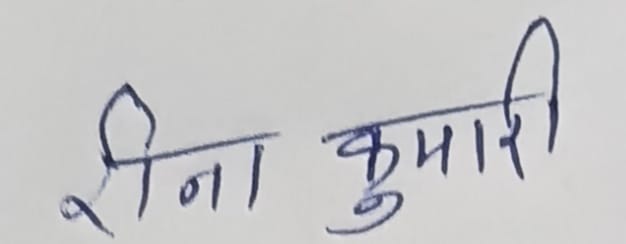 रीना कुमारी